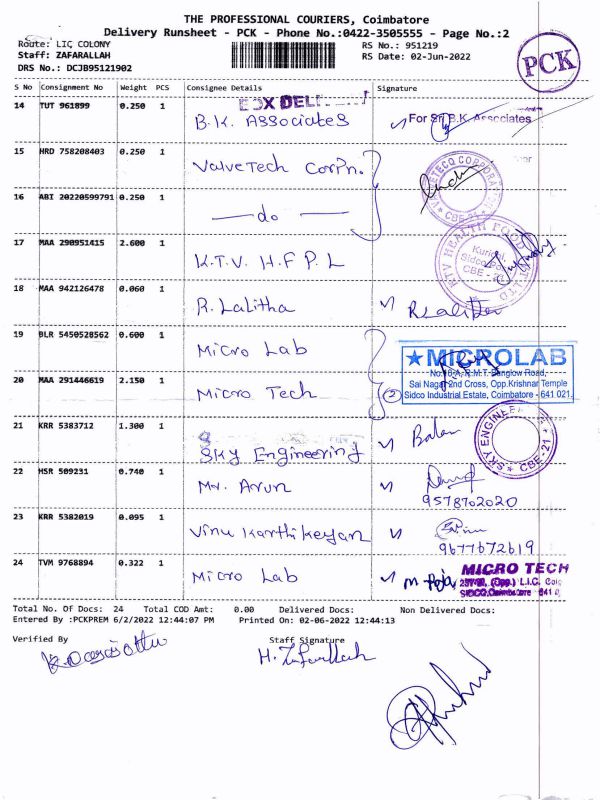 THE PROFESSIONAL COURIERS, Coimbatore
Delivery Runsheet - PCK - Phone No.:0422-3505555 - Page No.:2
Route: LIC COLONY
RS No.: 951219
Staff: ZAFARALLAH
RS Date: 02-Jun-2022
DRS No.: DCJB95121902
PCK
S No Consignment No Weight PCS Consignee Details Signature
14 TUT 961899 0.250 1 B.K. Associates
For Sri B.K. Associates
15 HRD 758208403 0.250 1 ValveTech Corpn.
16 ABI 20220599791 0.250 1 —do—
CBE-21
17 MAA 290951415 2.600 1 K.T.V. H.F.P.L
KTV HEALTH FOOD
CBE - 21
18 MAA 942126478 0.060 1 R. Lalitha
19 BLR 5450528562 0.600 1 Micro Lab
MICROLAB
20 MAA 291446619 2.150 1 Micro Tech 2
Sai Nagar 2nd Cross, Opp.Krishnar Temple
Sidco Industrial Estate, Coimbatore - 641 021.
21 KRR 5383712 1.300 1 Sky Engineering
SKY ENGINEER
CBE-21
22 HSR 509231 0.740 1 Mr. Arun
9578702020
23 KRR 5382019 0.095 1 Vinu Karthikeyan
9677672619
24 TVM 9768894 0.322 1 Micro Lab
MICRO TECH
Total No. Of Docs: 24 Total COD Amt: 0.00 Delivered Docs: Non Delivered Docs:
Entered By :PCKPREM 6/2/2022 12:44:07 PM Printed On: 02-06-2022 12:44:13
Verified By Staff Signature
H. Zafarllah